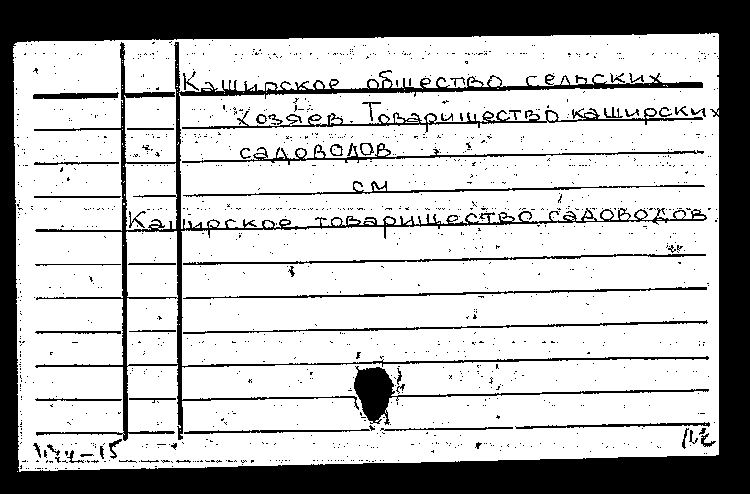 Каширское общество сельских
хозяев. Товарищество каширских
садоводов
см
Каширское товарищество садоводов.